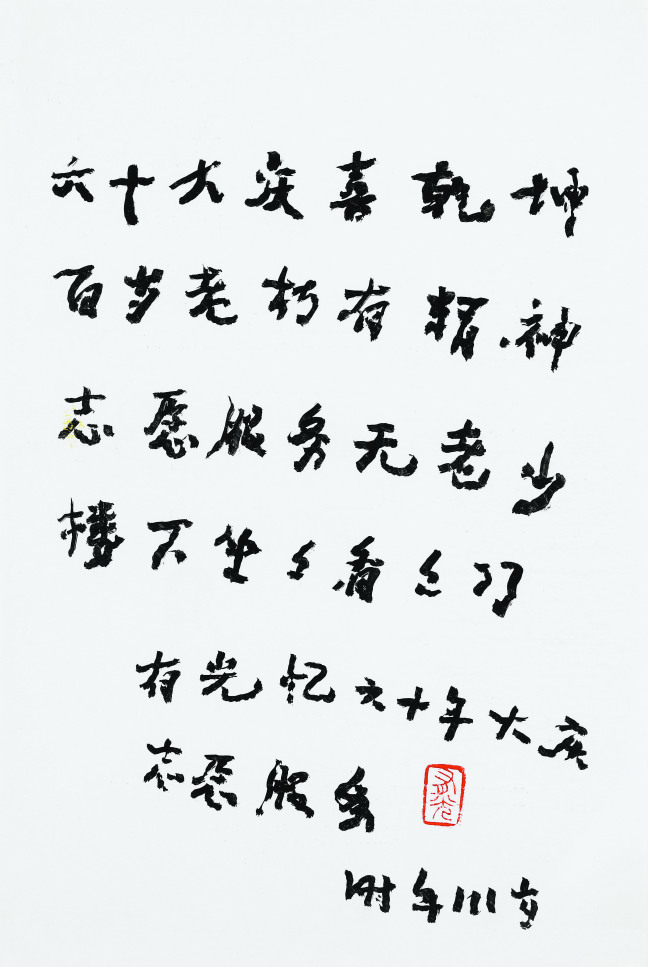 六十大庆喜乾坤
百岁老朽有精神
志愿服务无老少
楼下坐々看々门
有光忆六十年大庆
志愿服务
有光
时年111岁